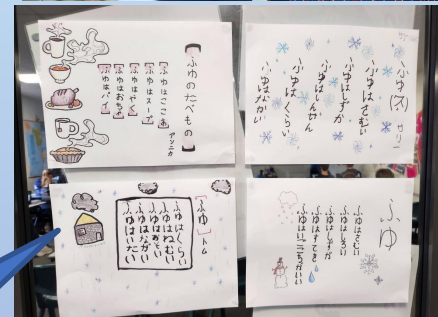 ふゆのたべもの
アンニカ
ふゆはここあ
ふゆはスープ
ふゆはやく
ふゆはおちゃ
ふゆはパイ
ふゆ(冬)
カリン
ふゆはさむい
ふゆはしずか
ふゆはくらい
ふゆはしんせん
ふゆはながい
「ふゆ」トム
ふゆはくらい
ふゆはねむい
ふゆはあおい
ふゆはながい
ふゆはいたい
ふゆ
ふゆはさむい
ふゆはしろい
ふゆはしずか
ふゆはすてき
ふゆはいごこちがいい